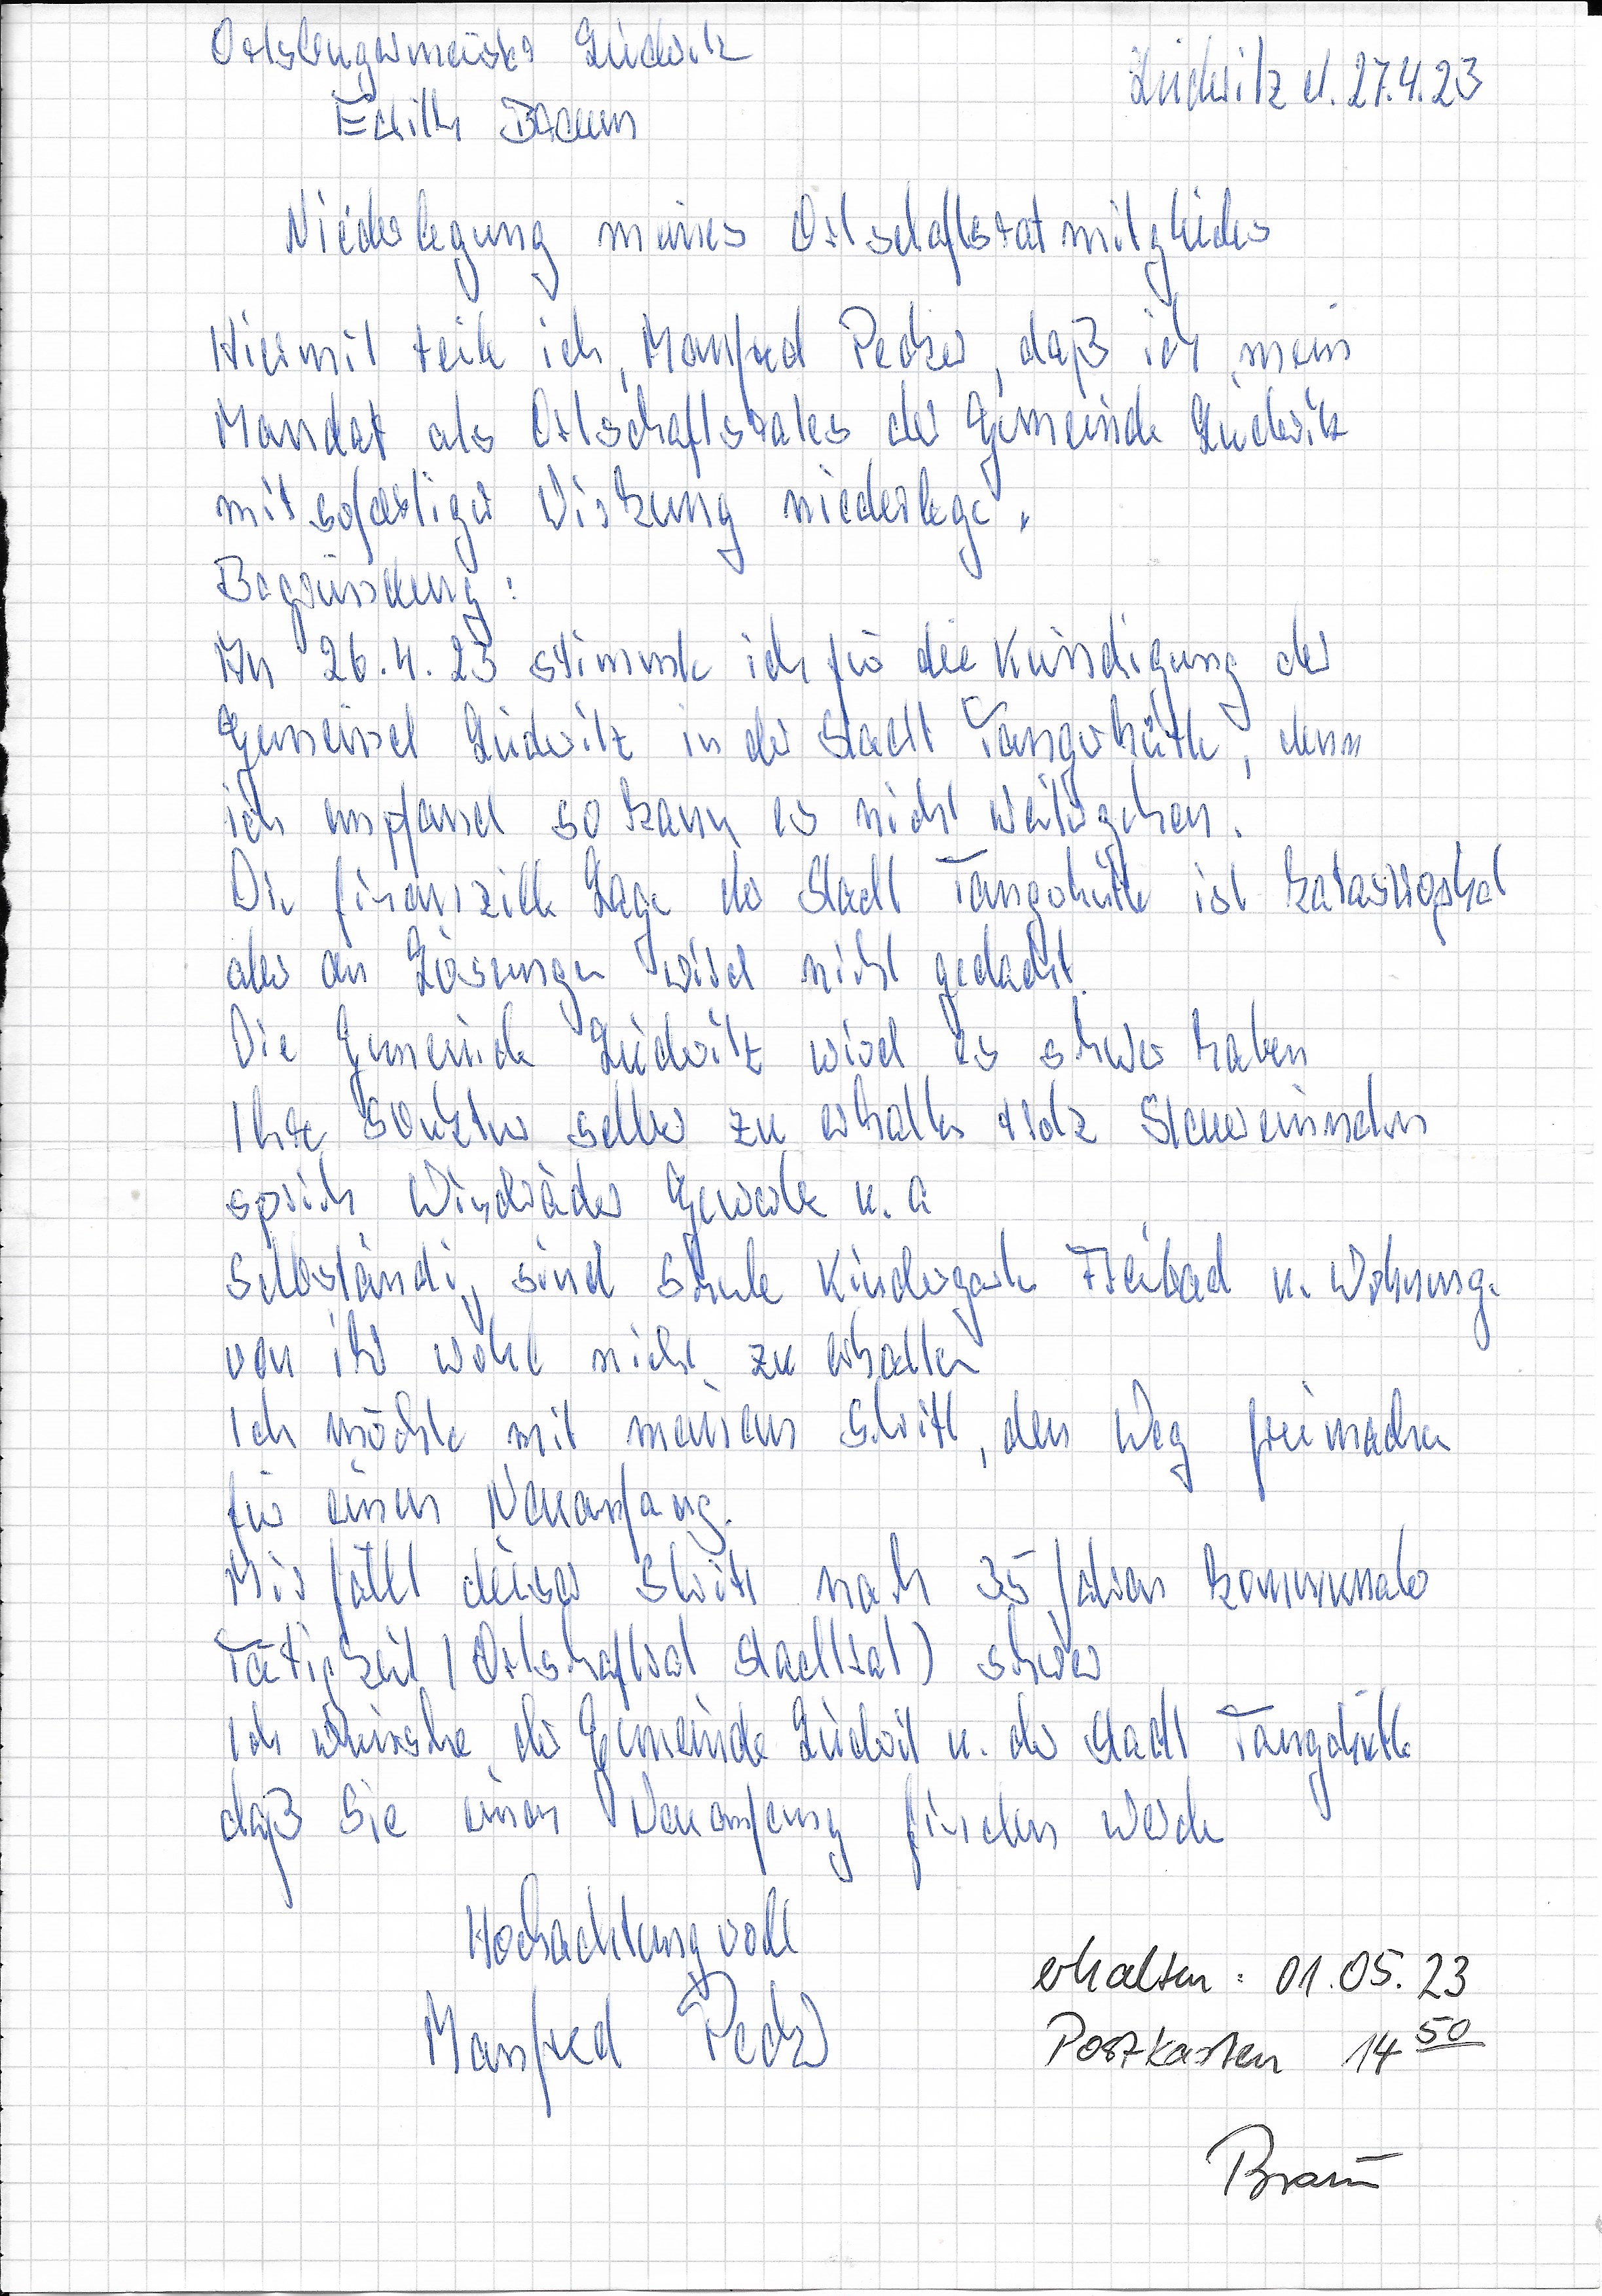 Ortsbürgermeister Lüderitz
Lüderitz d. 27.4.23
Edith Braun
Niederlegung meines Ortschaftsratmitglides
Hiermit teile ich, Manfred Pecker, daß ich mein
Mandat als Ortschaftsrates der Gemeinde Lüderitz
mit sofortiger Wirkung niederlege.
Begründung:
Am 26.4.23 stimmte ich für die Kündigung der
Gemeind Lüderitz in der Stadt Tangerhütte, denn
ich empfand so kann es nicht weitergehen.
Die finanzille Lage der Stadt Tangerhütte ist katastrophal
aber an Lösungen wird nicht gedacht.
Die Gemeinde Lüderitz wird es schwer haben
Ihre selber zu erhalten trotz Steuereinnahmen
sprich Windräder Gewerbe u. a
Selbständig sind Schule Kindergarten Freibad u. Wohnung.
von ihr wohl nicht zu erhalten
Ich möchte mit meinem Schritt, den Weg frei machen
für einen Neuanfang.
Mir fällt dieser Schritt nach 35 Jahren kommunaler
Tätigkeit (Ortschaftsrat Stadtrat) schwer
Ich wünsche der Gemeinde Lüderitz u. der Stadt Tangerhütte
daß Sie einen Neuanfang finden werde
Hochachtungsvoll
Manfred Pecker
erhalten: 01.05.23
Postkasten 14 50
Braun